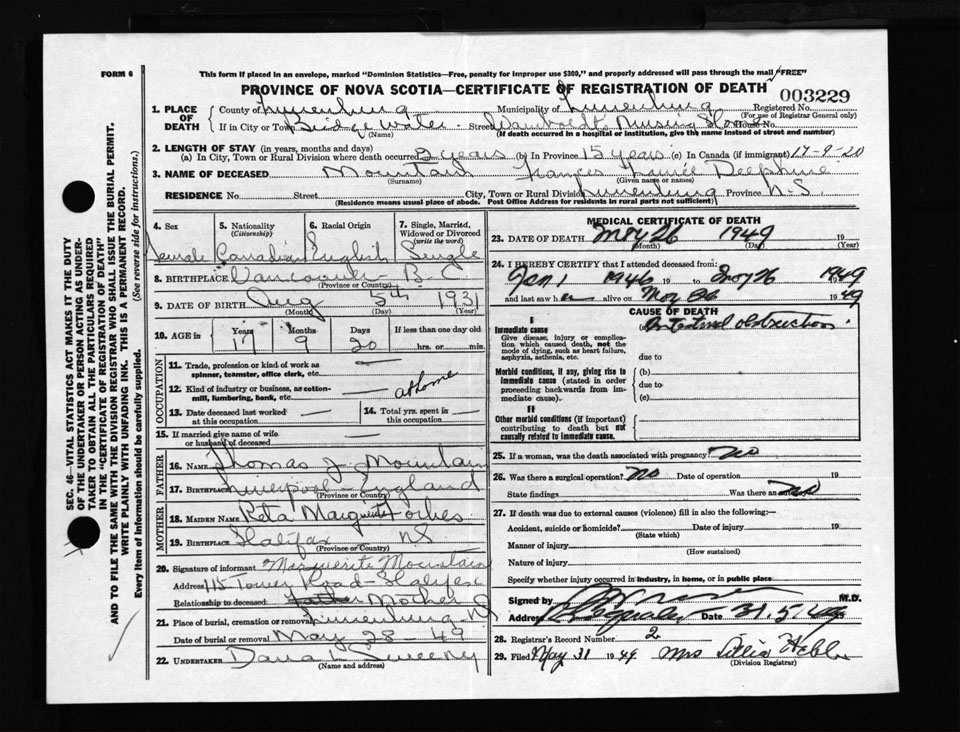 FORM 6
This form if placed in an envelope, marked "Dominion Statistics—Free, penalty for improper use $300," and properly addressed will pass through the mail "FREE"
PROVINCE OF NOVA SCOTIA—CERTIFICATE OF REGISTRATION OF DEATH
003229
1. PLACE OF DEATH
County of Lunenburg Municipality of Lunenburg Registered No.
(For use of Registrar General only)
If in City or Town Bridgewater Street Nursing Home House No.
(Name) (If death occurred in a hospital or institution, give the name instead of street and number)
2. LENGTH OF STAY (in years, months and days)
(a) In City, Town or Rural Division where death occurred 2 years (b) In Province 15 years (c) In Canada (if immigrant) 17-9-20
3. NAME OF DECEASED Mountain Frances
(Surname) (Given name or names)
RESIDENCE No. Street City, Town or Rural Division Lunenburg Province N.S.
(Residence means usual place of abode. Post Office Address for residents in rural parts not sufficient)
4. Sex
Female
5. Nationality
(Citizenship)
Canadian
6. Racial Origin
English
7. Single, Married, Widowed or Divorced
(write the word)
Single
8. BIRTHPLACE Vancouver B.C.
(Province or Country)
9. DATE OF BIRTH Aug 5th 1931
(Month) (Day) (Year)
10. AGE in
Years Months Days If less than one day old
17 9 20 hrs. or min.
OCCUPATION
11. Trade, profession or kind of work as spinner, teamster, office clerk, etc. —
12. Kind of industry or business, as cotton-mill, lumbering, bank, etc. at home
13. Date deceased last worked at this occupation —
14. Total yrs. spent in this occupation —
15. If married give name of wife or husband of deceased —
FATHER
16. NAME Thomas J. Mountain
17. BIRTHPLACE Liverpool – England
(Province or Country)
MOTHER
18. MAIDEN NAME Reta Marguerite Forbes
19. BIRTHPLACE Halifax NS
(Province or Country)
20. Signature of informant Marguerite Mountain
Address 115 Tower Road – Halifax
Relationship to deceased Father Mother
21. Place of burial, cremation or removal Lunenburg N.S.
Date of burial or removal May 28 – 49
22. UNDERTAKER Dana L Sweeny
(Name and address)
MEDICAL CERTIFICATE OF DEATH
23. DATE OF DEATH May 26 1949 19
(Month) (Day) (Year)
24. I HEREBY CERTIFY that I attended deceased from:
Jan 1 1946 19 to May 26 1949
and last saw her alive on May 26 1949
CAUSE OF DEATH
I
Immediate cause
Give disease, injury or complication which caused death, not the mode of dying, such as heart failure, asphyxia, asthenia, etc.
(a) Intestinal obstruction
due to
Morbid conditions, if any, giving rise to immediate cause (stated in order proceeding backwards from immediate cause).
(b)
due to
(c)
II
Other morbid conditions (if important) contributing to death but not causally related to immediate cause.
25. If a woman, was the death associated with pregnancy? No
26. Was there a surgical operation? No Date of operation 19
State findings Was there an autopsy? No
27. If death was due to external causes (violence) fill in also the following:—
Accident, suicide or homicide? Date of injury 19
(State which)
Manner of injury
(How sustained)
Nature of injury
Specify whether injury occurred in industry, in home, or in public place
Signed by M.D.
Address Date 31.5.49
28. Registrar's Record Number 2
29. Filed May 31 1949 Mrs Lillis
(Division Registrar)
SEC. 46—VITAL STATISTICS ACT MAKES IT THE DUTY
OF THE UNDERTAKER OR PERSON ACTING AS UNDER-
TAKER TO OBTAIN ALL THE PARTICULARS REQUIRED
IN THE "CERTIFICATE OF REGISTRATION OF DEATH"
AND TO FILE THE SAME WITH THE DIVISION REGISTRAR WHO SHALL ISSUE THE BURIAL PERMIT.
WRITE PLAINLY WITH UNFADING INK. THIS IS A PERMANENT RECORD.
Every item of Information should be carefully supplied. (See reverse side for instructions.)